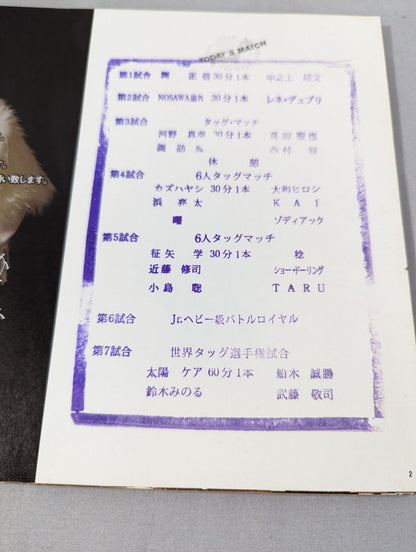 TODAY'S MATCH
第1試合 関 正信 30分1本 中之上 靖文
第2試合 NOSAWA論外 30分1本 レネ・デュプリ
第3試合 タッグ・マッチ
河野 真幸 30分1本 真田 聖也
諏訪魔 西村 修
休憩
第4試合 6人タッグマッチ
カズハヤシ 30分1本 大和ヒロシ
浜 亮太 KAI
曙 ゾディアック
第5試合 6人タッグマッチ
征矢 学 30分1本 稔
近藤 修司 ショー・ドーリング
小島 聡 TARU
第6試合 Jr.ヘビー級バトルロイヤル
第7試合 世界タッグ選手権試合
太陽 ケア 60分1本 船木 誠勝
鈴木みのる 武藤 敬司
す。
い致します。
2